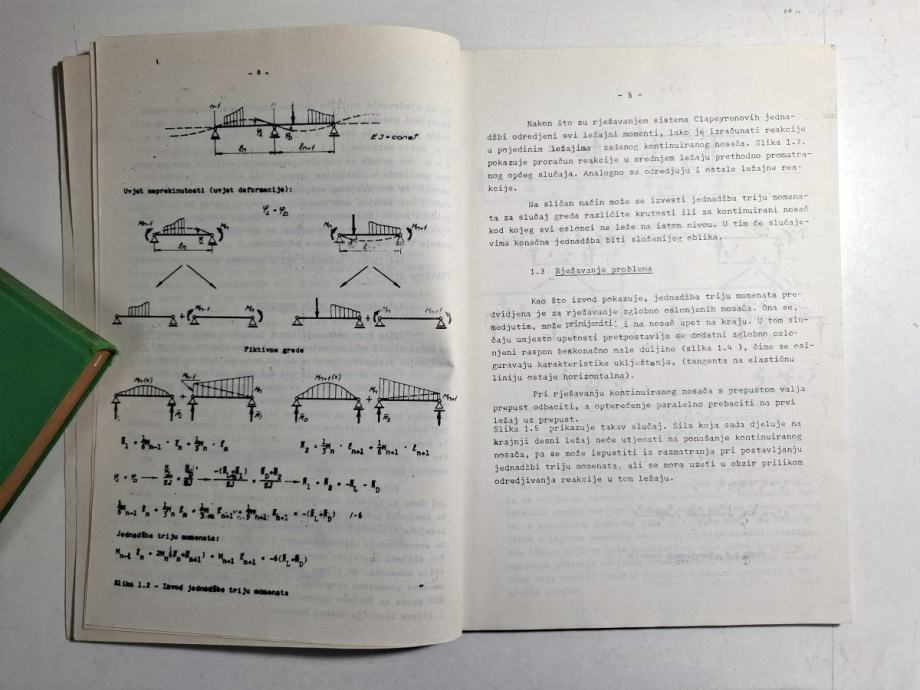 - 4 -
n-1 n
EJ=const
ln ln+1
Uvjet neprekinutosti (uvjet deformacije):
φL = φD
Mn-1 Mn Mn Mn+1
ln
Mn-1 Mn Mn Mn+1
+ +
Fiktivne grede
Mn(x) Mn-1 Mn Mn+1(x) Mn Mn+1
Jednadžba triju momenata:
Slika 1.2 - Izvod jednadžbe triju momenata
- 5 -
Nakon što su rješavanjem sistema Clapeyronovih jedna-
džbi odredjeni svi ležajni momenti, lako je izračunati reakcije
u pojedinim ležajima zadanog kontinuiranog nosača. Slika 1.3.
pokazuje proračun reakcije u srednjem ležaju prethodno promatra-
nog općeg slučaja. Analogno se odredjuju i ostale ležajne rea-
kcije.
Na sličan način može se izvesti jednadžba triju momena-
ta za slučaj greda različite krutosti ili za kontinuirani nosač
kod kojeg svi oslonci ne leže na istom nivou. U tim će slučaje-
vima konačna jednadžba biti složenijeg oblika.
1.3 Rješavanje problema
Kao što izvod pokazuje, jednadžba triju momenata pre-
dvidjena je za rješavanje zglobno oslonjenih nosača. Ona se,
medjutim, može primijeniti i na nosač upet na kraju. U tom slu-
čaju umjesto upetosti pretpostavlja se dodatni zglobno oslo-
njeni raspon beskonačno male duljine (slika 1.4 ), čime se osi-
guravaju karakteristike uklještenja, (tangenta na elastičnu
liniju ostaje horizontalna).
Pri rješavanju kontinuiranog nosača s prepustom valja
prepust odbaciti, a opterećenje paralelno prebaciti na prvi
ležaj uz prepust.
Slika 1.5 prikazuje takav slučaj. Sila koja sada djeluje na
krajnji desni ležaj neće utjecati na ponašanje kontinuiranog
nosača, pa se može ispustiti iz razmatranja pri postavljanju
jednadžbi triju momenata, ali se mora uzeti u obzir prilikom
odredjivanja reakcije u tom ležaju.